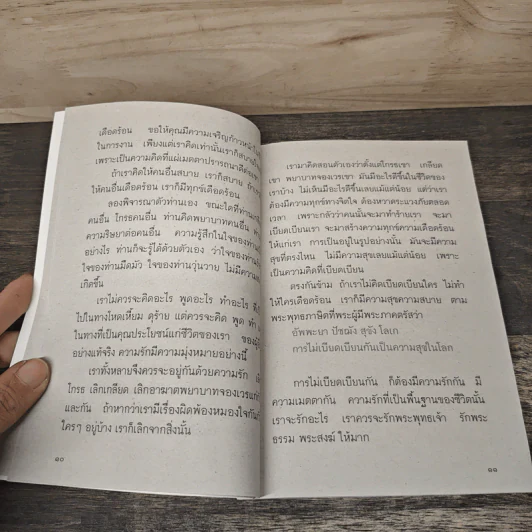 เดือดร้อน ขอให้คุณมีความเจริญก้าวหน้า
ในการงาน เพียงแต่เราคิดเท่านั้นเราก็สบาย
เพราะเป็นความคิดที่แผ่เมตตาปรารถนาดีต่อ
ถ้าเราคิดให้คนอื่นสบาย เราก็สบาย ถ้า
ให้คนอื่นเดือดร้อน เราก็มีทุกข์เดือดร้อน
ลองพิจารณาตัวท่านเอง ขณะใดที่ท่าน
คนอื่น โกรธคนอื่น ท่านคิดพยาบาทคนอื่น
ความริษยาต่อคนอื่น ความรู้สึกในใจของท่าน
อย่างไร ท่านก็จะรู้ได้ด้วยตัวเอง ว่าใจของท่าน
ใจของท่านมืดมัว ใจของท่านวุ่นวาย ไม่มีความ
เกิดขึ้น
เราไม่ควรจะคิดอะไร พูดอะไร ทำอะไร ที่
ไปในทางโหดเหี้ยม ดุร้าย แต่ควรจะคิด พูด ทำ
ในทางที่เป็นคุณประโยชน์แก่ชีวิตของเรา ของ
อย่างแท้จริง ความรักมีความมุ่งหมายอย่างนี้
เราทั้งหลายจึงควรจะอยู่กันด้วยความรัก
โกรธ เลิกเกลียด เลิกอาฆาตพยาบาทจองเวรแก่
และกัน ถ้าหากว่าเรามีเรื่องผิดพ้องหมองใจกัน
ใครๆ อยู่บ้าง เราก็เลิกจากสิ่งนั้น
๑๐
เรามาคิดสอนตัวเองว่าตั้งแต่โกรธเขา เกลียด
เขา พยาบาทจองเวรเขา มันมีอะไรดีขึ้นในชีวิตของ
เราบ้าง ไม่เห็นมีอะไรดีขึ้นเลยแม้แต่น้อย แต่ว่าเรา
ต้องมีความทุกข์ทางจิตใจ ต้องหวาดระแวงภัยตลอด
เวลา เพราะกลัวว่าคนนั้นจะมาทำร้ายเรา จะมา
เบียดเบียนเรา จะมาสร้างความทุกข์ความเดือดร้อน
ให้แก่เรา การเป็นอยู่ในรูปอย่างนั้น มันจะมีความ
สุขที่ตรงไหน ไม่มีความสุขเลยแม้แต่น้อย เพราะ
เป็นความคิดที่เบียดเบียน
ตรงกันข้าม ถ้าเราไม่คิดเบียดเบียนใคร ไม่ทำ
ให้ใครเดือดร้อน เราก็มีความสุขความสบาย ตาม
พระพุทธภาษิตที่พระผู้มีพระภาคตรัสว่า
อัพพะยา ปัชฌัง สุขัง โลเก
การไม่เบียดเบียนกันเป็นความสุขในโลก
การไม่เบียดเบียนกัน ก็ต้องมีความรักกัน มี
ความเมตตากัน ความรักที่เป็นพื้นฐานของชีวิตนั้น
เราจะรักอะไร เราควรจะรักพระพุทธเจ้า รักพระ
ธรรม พระสงฆ์ ให้มาก
๑๑